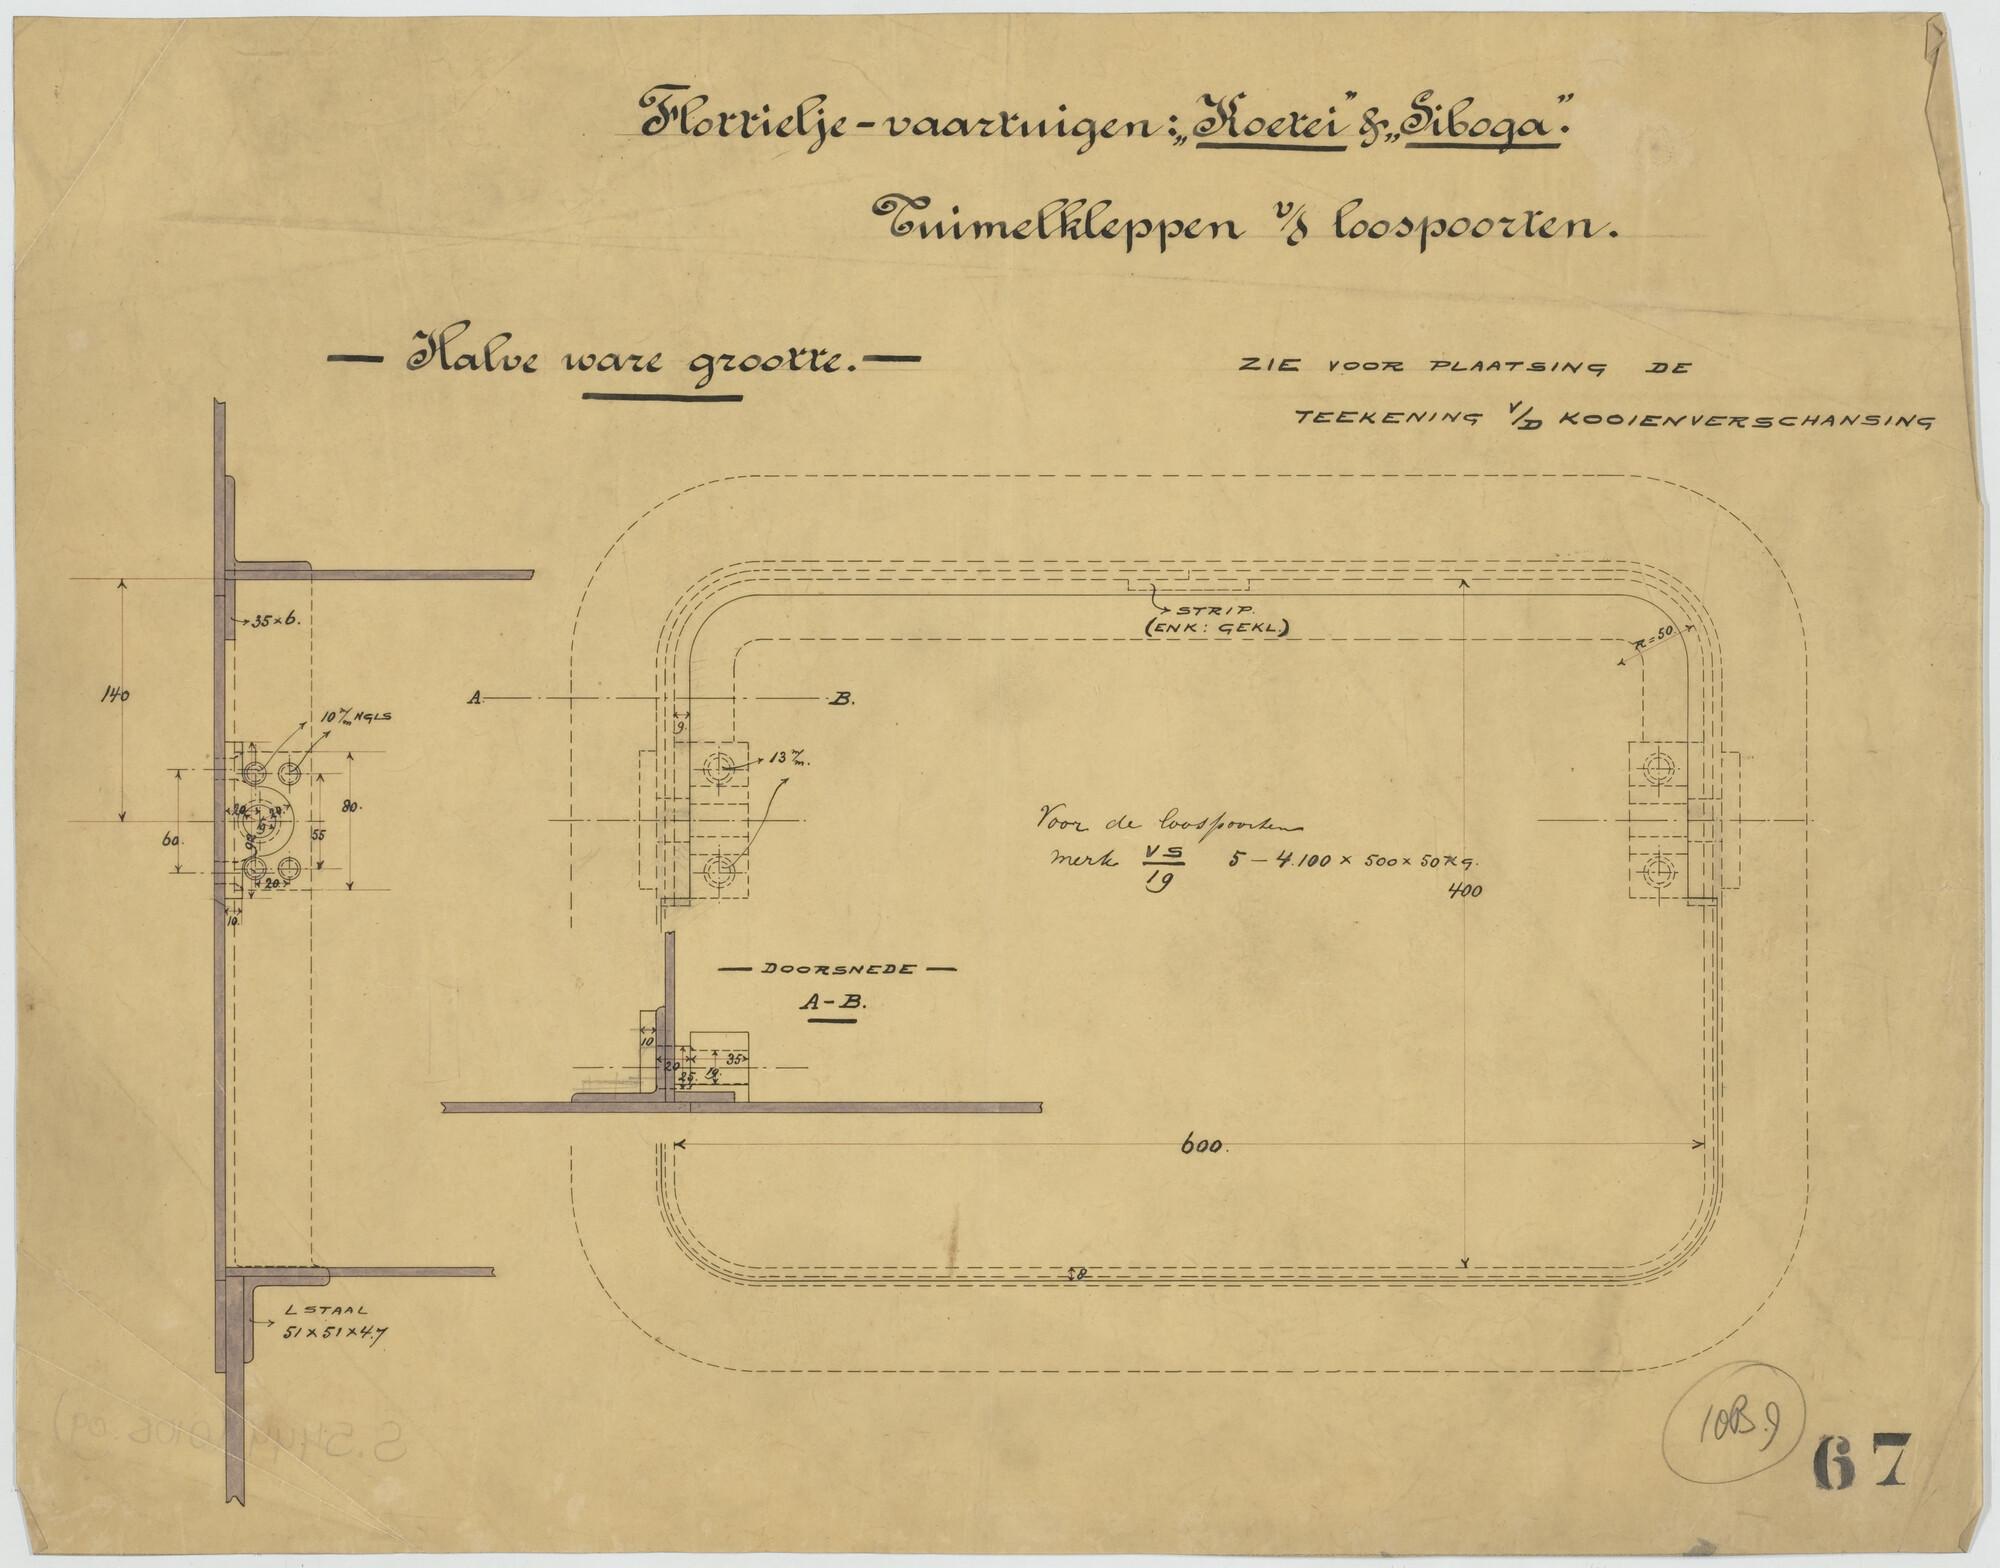 Flottielje-vaartuigen: „Koetei” & „Siboga”.
Tuimelkleppen v/d loospoorten.
— Halve ware grootte. —
ZIE VOOR PLAATSING DE
TEEKENING V/D KOOIENVERSCHANSING
35×6.
140
10 m/m NGLS
60.
20
20
55
80.
20
10.
L STAAL
51×51×4.7
STRIP.
(ENK: GEKL.)
R=50
A
B.
9.
13 m/m.
Voor de loospoorten
merk VS/19 5 – 4.100 × 500 × 50 KG.
400
— DOORSNEDE —
A–B.
10
20
25.
19.
35
600.
8
10B.9
67